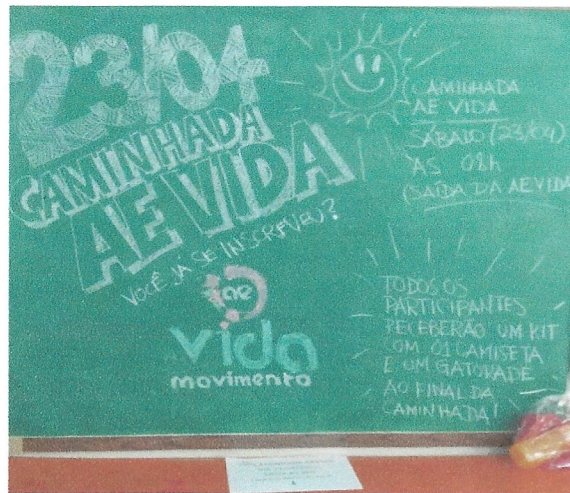 23/04
CAMINHADA
AE VIDA
VOCÊ JÁ SE INSCREVEU?
ae
vida
movimento
CAMINHADA
AE VIDA
SÁBADO (23/04)
ÀS 08h
(SAÍDA DA AEVIDA
TODOS OS
PARTICIPANTES
RECEBERÃO UM KIT
COM 01 CAMISETA
E UM GATORADE
AO FINAL DA
CAMINHADA!